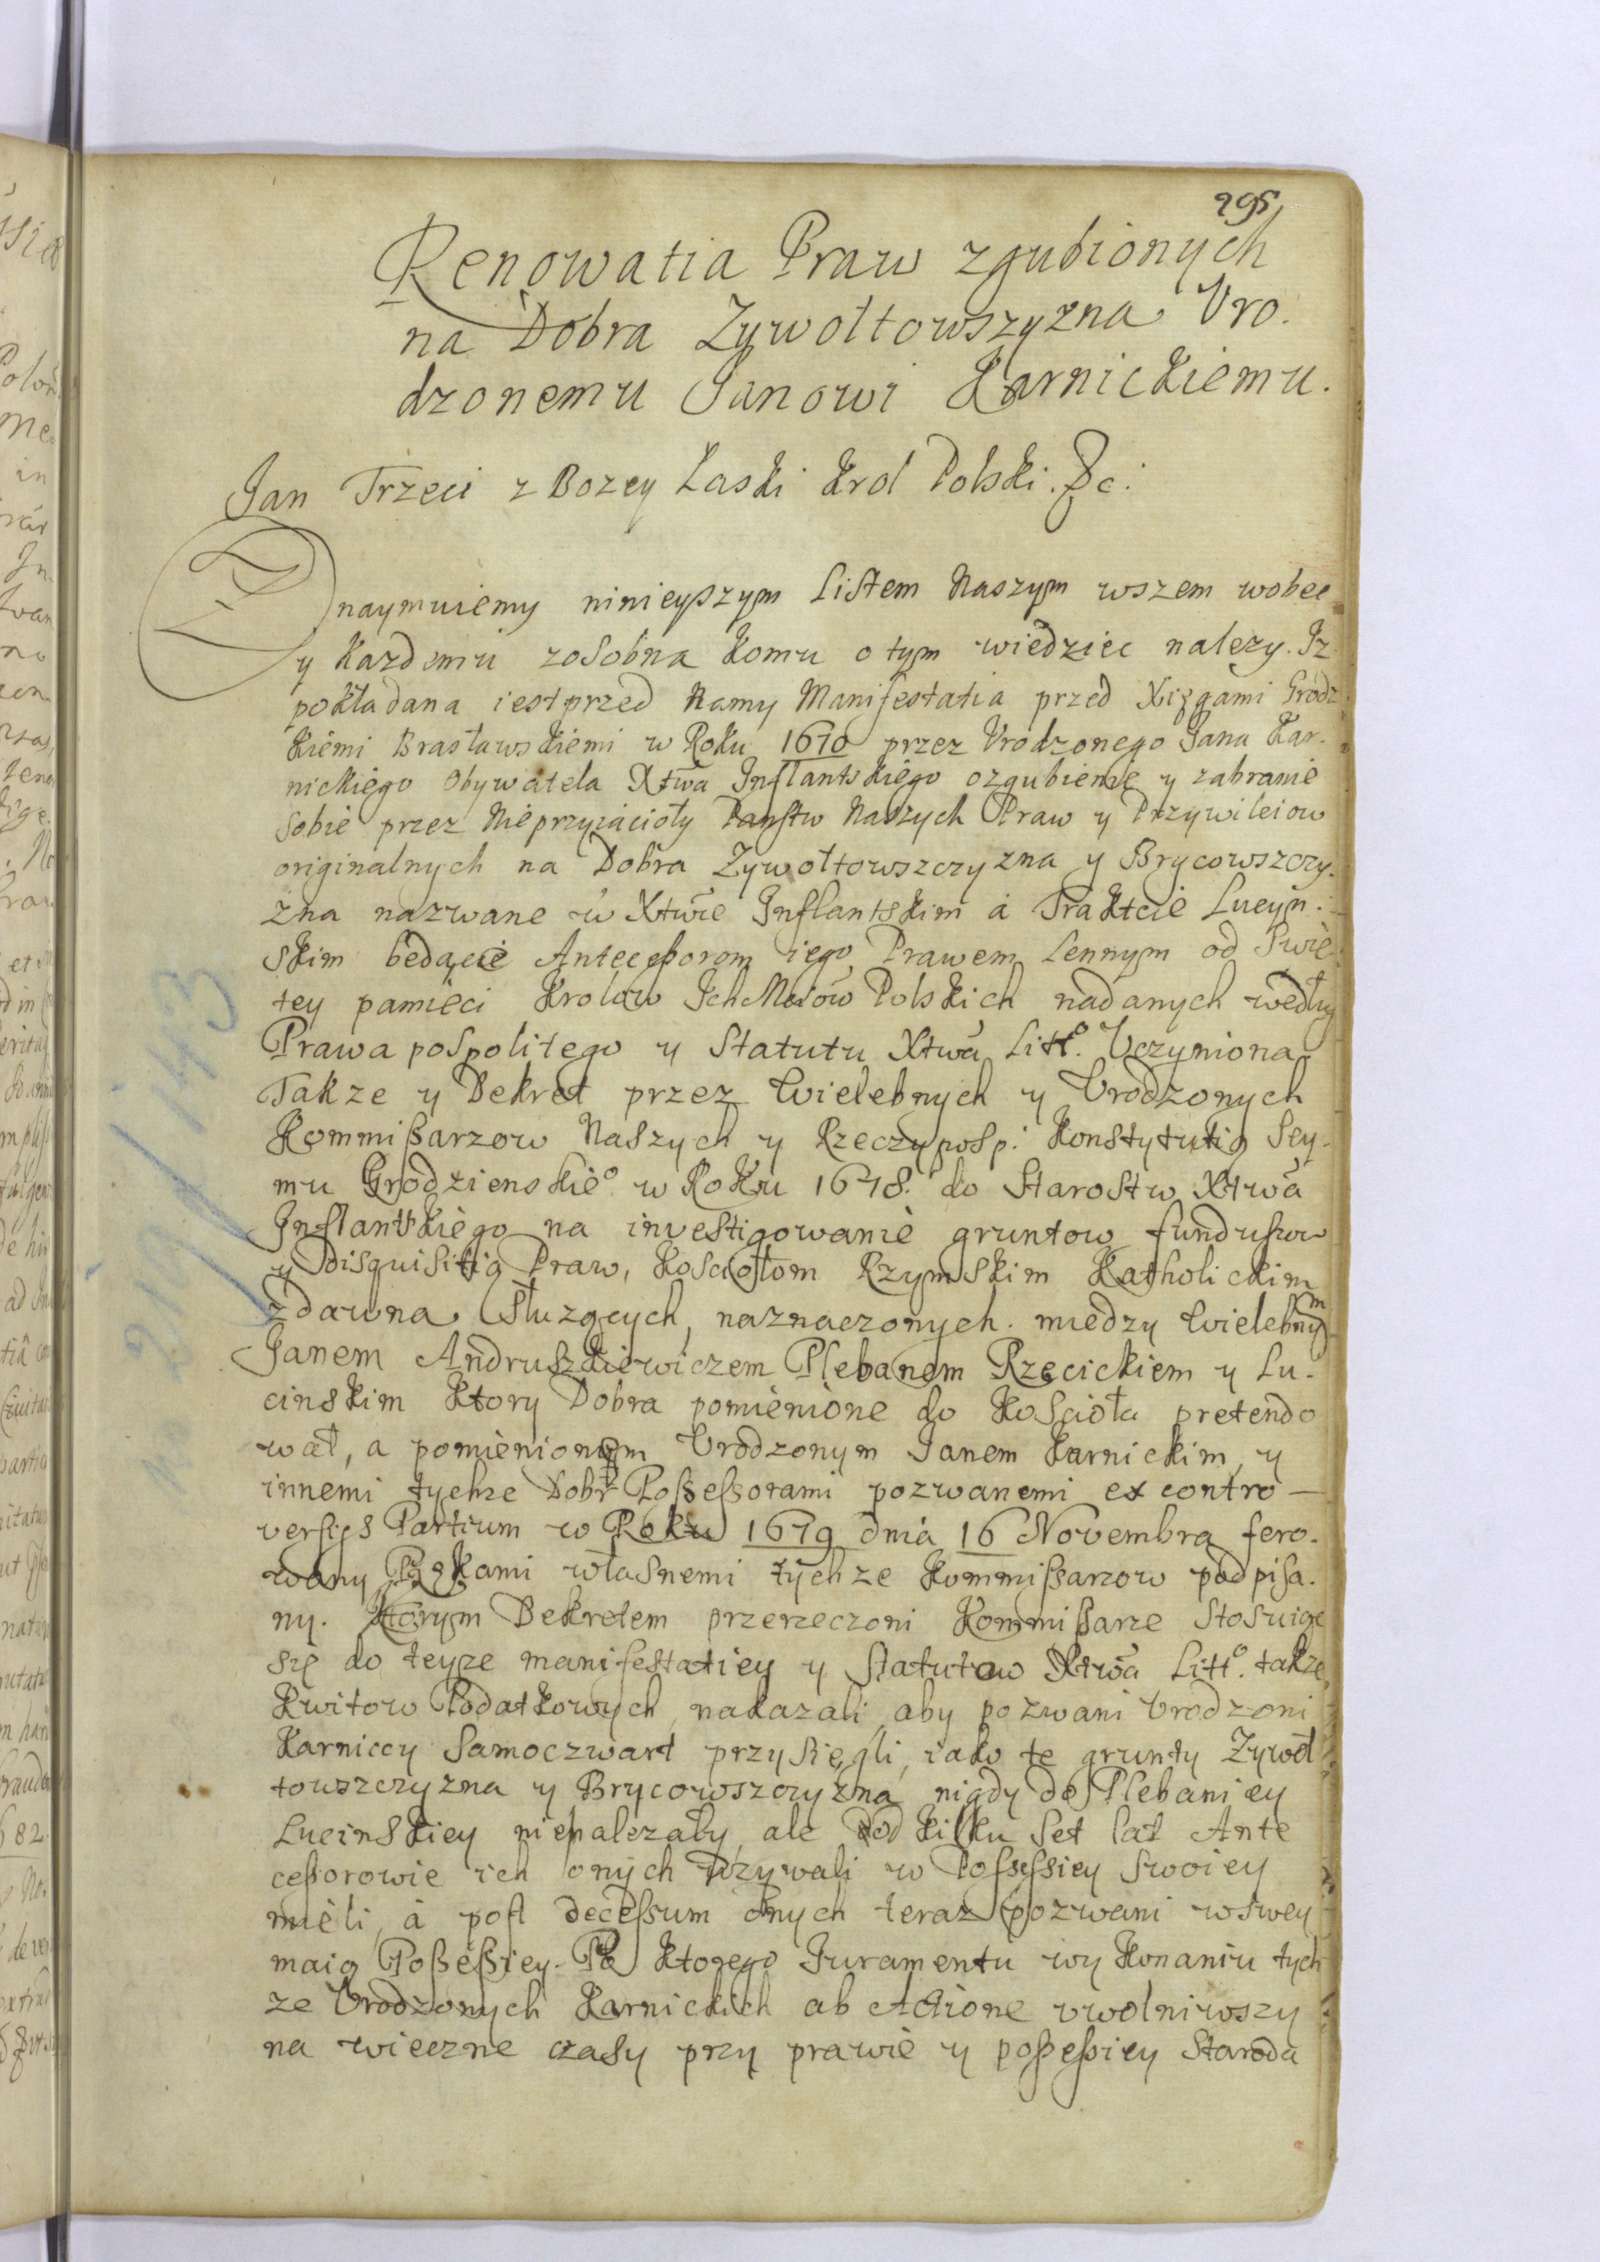 295
Renowatia Praw zgubionych
na Dobra Zywołtowszyzna Vro.
dzonemu Janowi Karnickiemu.
Jan Trzeci z Bozey Łaski Krol Polski. &c:
Znaymuiemy ninieyszym Listem Naszym wszem wobec
y Kazdemu zosobna komu o tym wiedziec nalezy. Iz
pokładana iest przed Namy Manifestatia przed Xięgami Grodz
kiemi Brasławskiemi w Roku 1670 przez Vrodzonego Jana Kar.
nickiego Obywatela Xtwa Inflantskiego ozgubienie y zabranie
sobie przez Nieprzyiacioły Panstw Naszych Praw y Przywileiow
originalnych na Dobra Zywołtowszczyzna y Brycowszczy.
zna nazwane w Xtwie Inflantskim á Trakcie Lucyn.
skim będące Antecessorom iego Prawem Lennym od Swię
tey pamięci Krolow Ich Mciow Polskich nadanych według
Prawa pospolitego y Statutu Xtwa Litt.º Vczyniona
Takze y Dekret przez Wielebnych y Vrodzonych
Kommißarzow Naszych y Rzeczyposp: Konstytutią Sey.
mu Grodzienskieº w Roku 1678. do Starostw Xtwa
Inflantskiego na investigowanie gruntow funduszow
y Disquisitią Praw, Kosciołom Rzymskim Katholickim
zdawna Służących, naznaczonych. miedzy Wielebnym
Janem Andruszkiewiczem Plebanem Rzęcickiem y Lu.
cinskim ktory Dobra pomienione do Koscioła pretendo
wał, a pomienionym Vrodzonym Janem Karnickim, y
innemi tychze Dobr Poßeßorami pozwanemi ex contro-
versiis Partium w Roku 1679 dnia 16 Novembra fero.
wany Rękami własnemi tychze Kommißarzow podpisa.
ny. Ktorym Dekretem przerzeczoni Kommißarze Stosuiąc
się do teyze manifestatiey y Statutow Xtwa Litt.º takze
Kwitow Podatkowych, nakazali, aby pozwani Vrodzoni
Karniccy Samoczwart przysięgli, iako te grunty Zywoł
towszczyzna y Brycowszczyzna nigdy do Plebaniey
Lucinskiey nienalezały, ale od kilku set lat Ante
ceßorowie ich onych Vzywali w Possessiey swoiey
mieli, á post deceßum onych teraz pozwani w swey
maią Poßeßiey. Po ktorego Juramentu wykonaniu tych
ze Vrodzonych Karnickich ab Actione vwolniwszy
na wieczne czasy przy prawie y poßeßiey Staroda